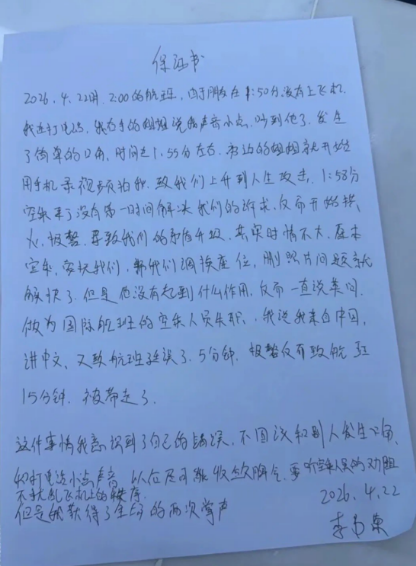 保证书
2026.4.22日 2:00的航班,由于朋友在1:50分没有上飞机,
我在打电话,我右手的姐姐说我声音小点,吵到他了。发生
了简单的口角,时间在1.55分左右。旁边的姐姐就开始
用手机录视频拍我,致我们上升到人生攻击,1:58分
空乘来了没有第一时间解决我们的诉求,反而开始拱
火、报警、导致我们的矛盾升级,其实时情不大,原本
空乘,安抚我们,帮我们调换座位,删照片问题就
解决了。但是他没有起到什么作用,反而一直说英国,
做为国际航班的空乘人员失职,我说我来自中国,
讲中文,又致航班延误了5分钟,报警反有致航班
15分钟,被带走了。
这件事情我意识到了自己的错误,不因该和别人发生口角,
和打电话小点声音,以在后可能收敛脾气,要听空乘人员的劝阻
不扰乱飞机上的秩序。
但是我获得了全场的两次掌声
2026.4.22
李